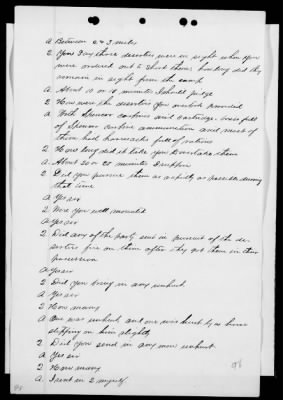 A Between 2 & 3 miles
Q You say those deserters were in sight when you
were ordered out to shoot them, how long did they
remain in sight from the camp
A About 10 or 15 minutes I should judge
Q How were the deserters you overtook provided
A With Spencer carbines and cartridge boxes full
of Spencer carbine ammunition and most of
them had haversacks full of rations
Q How long did it take you to overtake them
A About 20 or 25 minutes I suppose
Q Did you pursue them as rapidly as possible during
that time
A Yes sir
Q Were you well mounted
A Yes sir
Q Did any of the party sent in pursuit of the de-
serters fire on them after they got them in their
possession
A Yes sir
Q Did you bring in any unhurt
A Yes sir
Q How many
A One was unhurt and one was hurt by a horse
stepping on him slightly
Q Did you send in any men unhurt
A Yes sir
Q How many
A. I sent in 2 myself